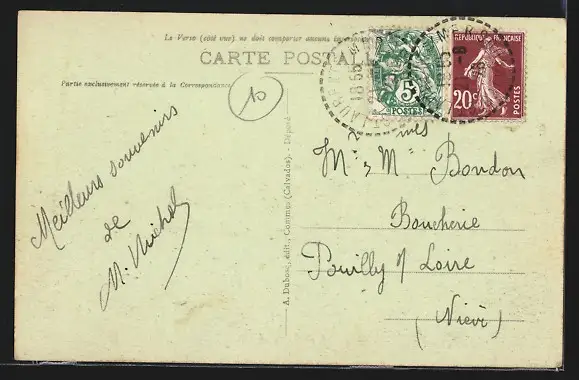 Le Verso (côté vue) ne doit comporter aucune
CARTE POSTALE
Partie exclusivement réservée à la Correspondance
10
5c
POSTES
RÉPUBLIQUE FRANÇAISE
20c
POSTES
Meilleurs souvenirs
de
M. Michel
A. Dubosq, édit., Commes (Calvados). - Déposé
Mr & Mmes Bondon
Boucherie
Pouilly s/ Loire
(Nièv)